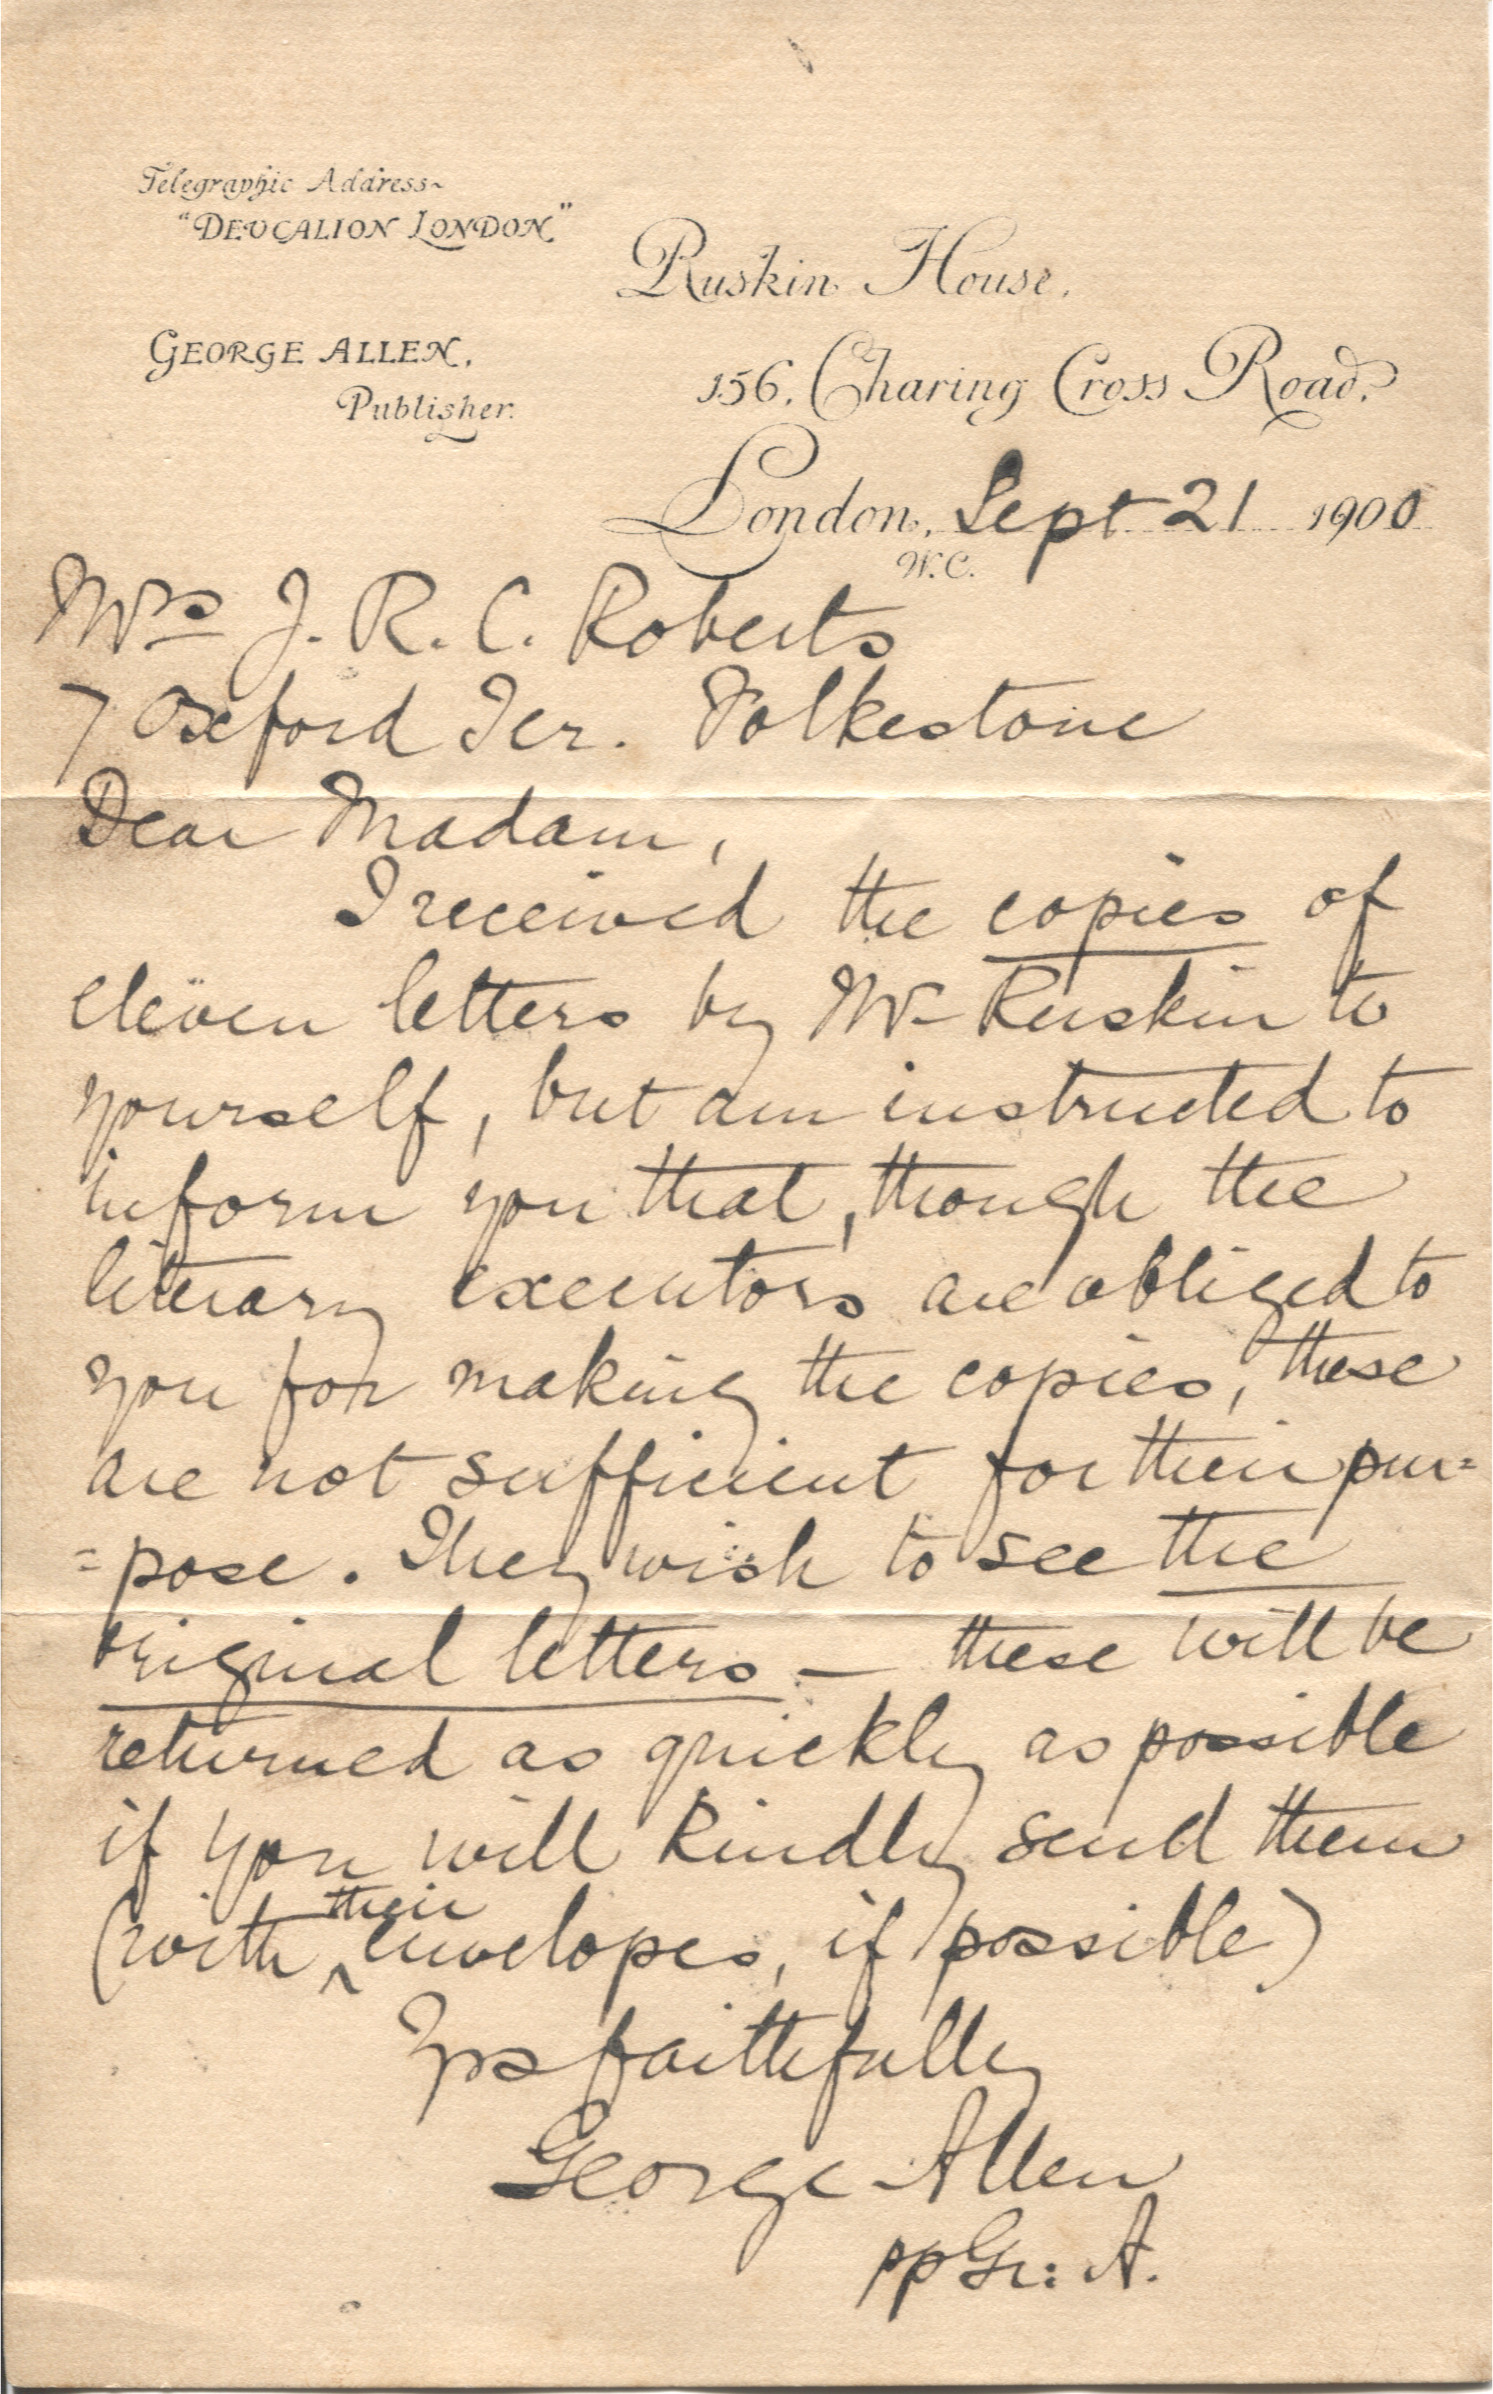 Telegraphic Address~
"DEUCALION LONDON."
GEORGE ALLEN,
Publisher.
Ruskin House,
156, Charing Cross Road,
London, Sept 21 1900
W.C.
Mrs J. R. C. Roberts
7 Oxford Ter. Folkestone
Dear Madam,
I received the copies of
eleven letters by Mr Ruskin to
yourself, but am instructed to
inform you that, though the
literary executors are obliged to
you for making the copies, these
are not sufficient for their pur=
=pose. They wish to see the
original letters — these will be
returned as quickly as possible
if you will kindly send them
(with their envelopes, if possible)
Yrs faithfully
George Allen
pp Gr: A.